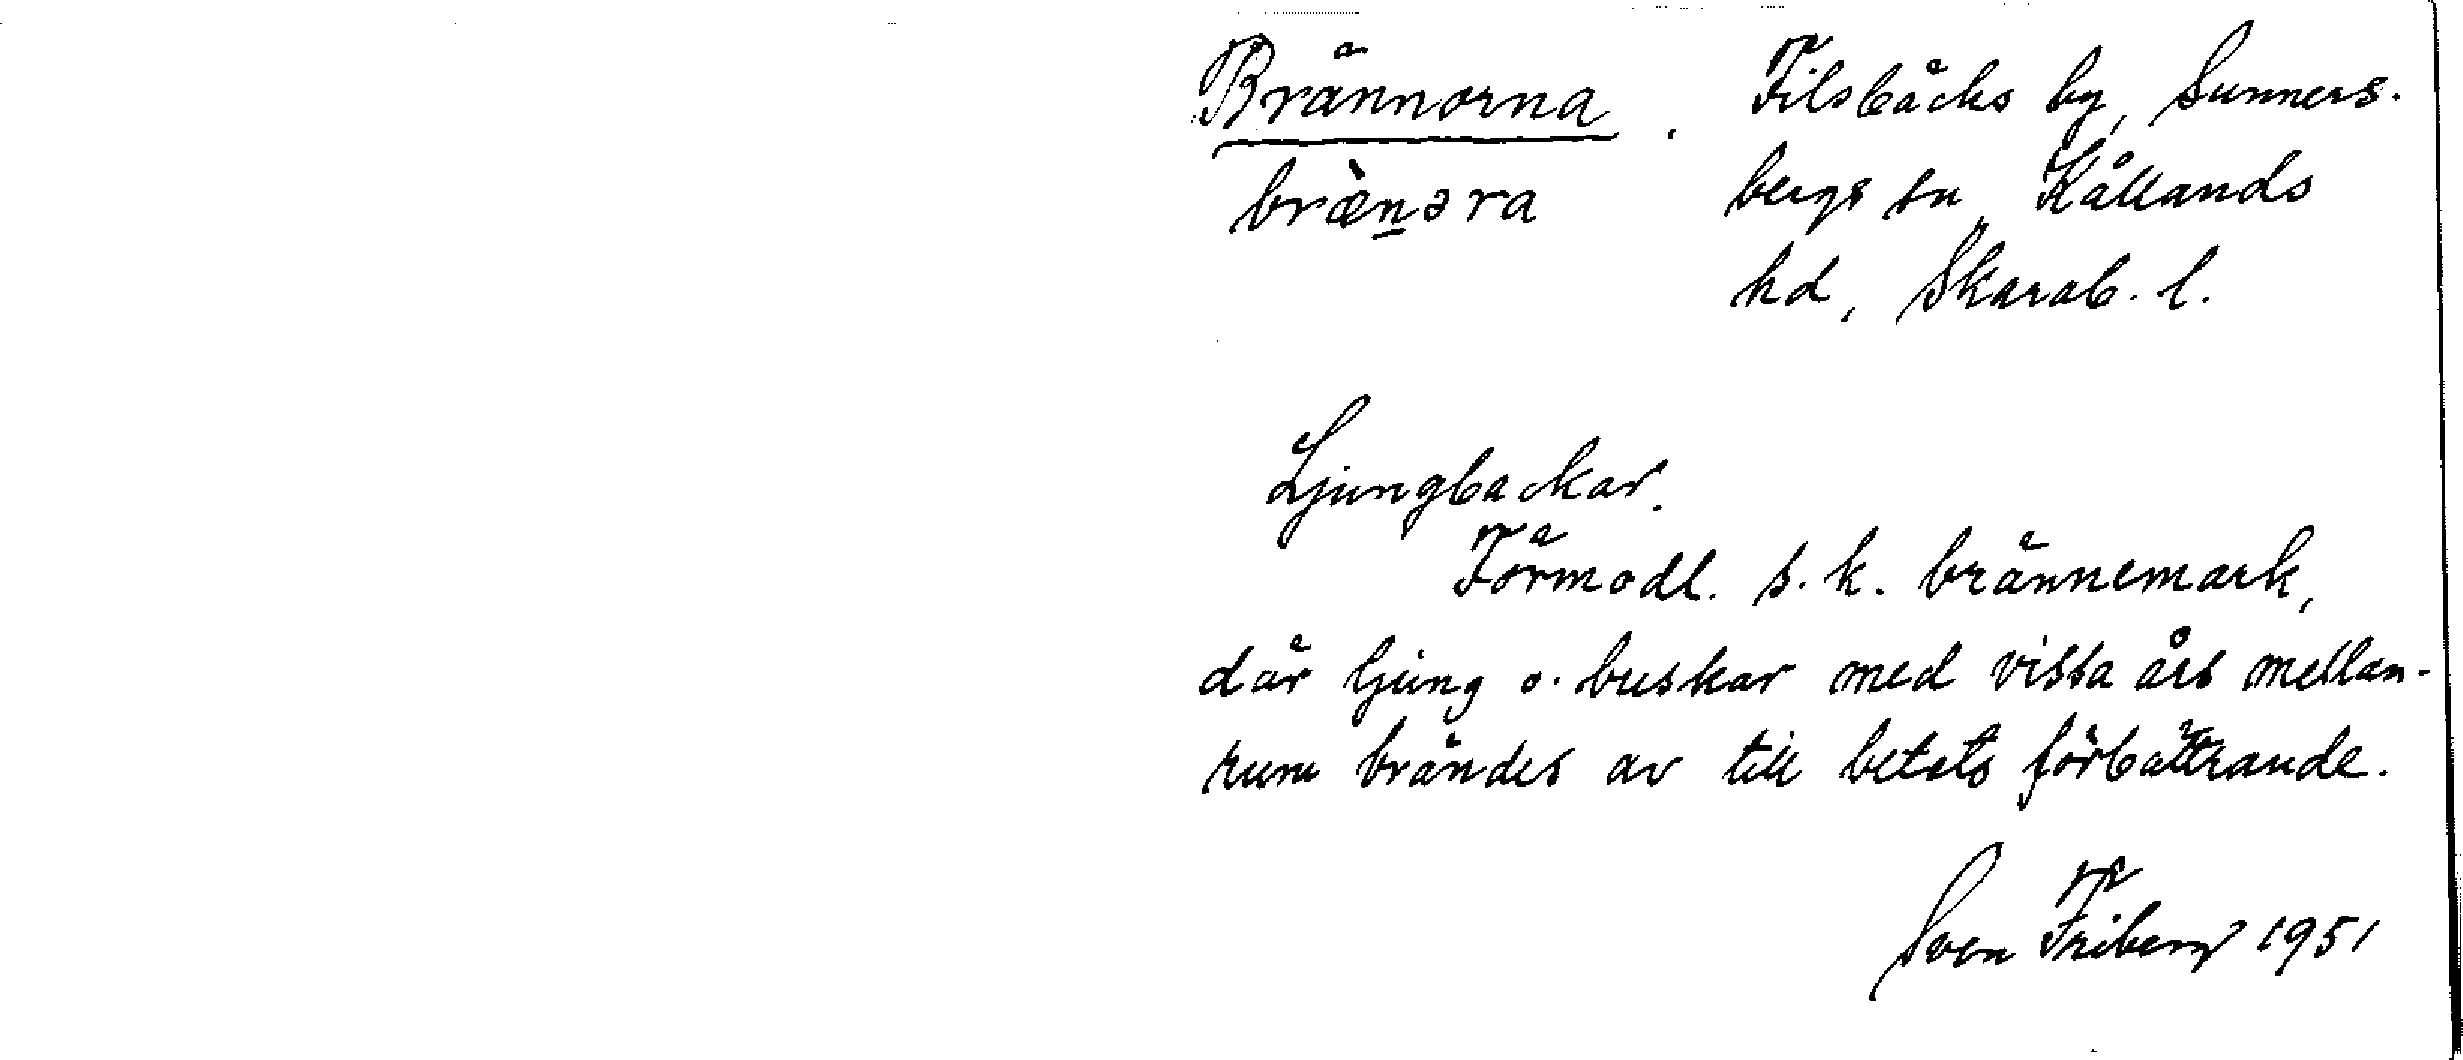 Brännorna, Filsbäcks by, Sunners-
bræ̀n̲əra bergs sn, Kållands
hd, Skarab. l.
Ljungbackar.
Förmodl. s.k. brännemark,
där ljung o. buskar med vissa års mellan-
rum brändes av till betets förbättrande.
Sven Friberg 1951